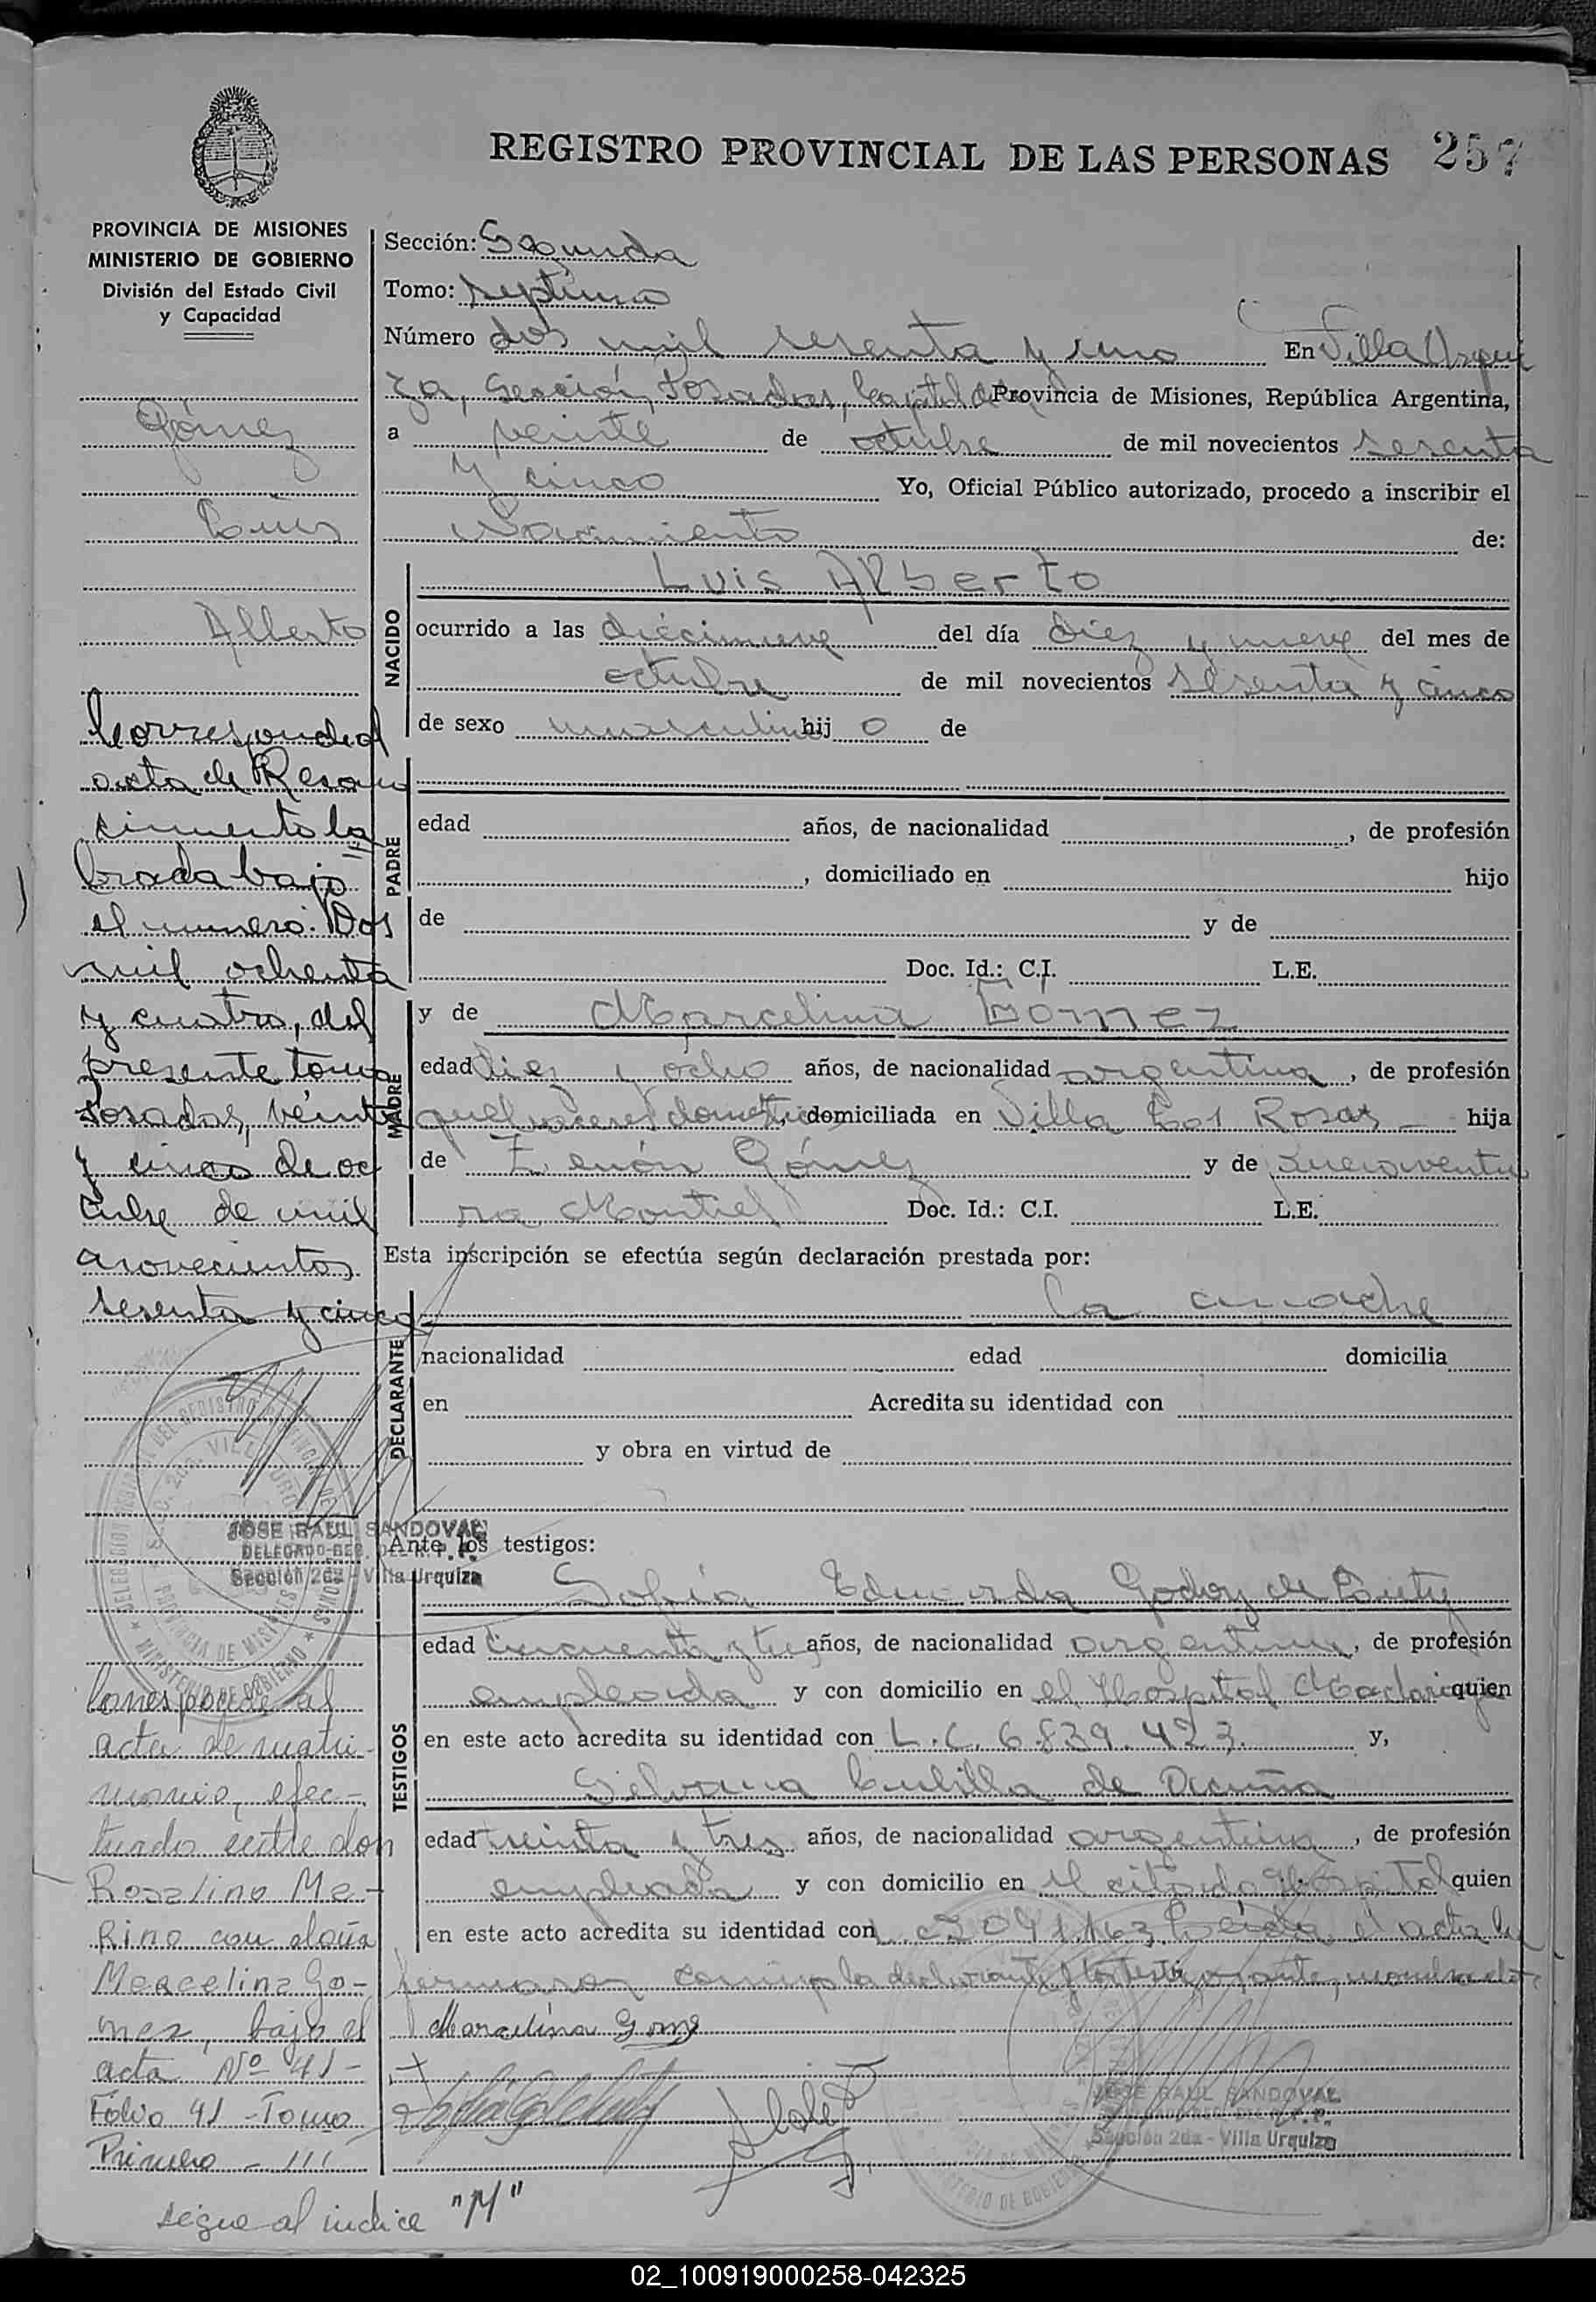 REGISTRO PROVINCIAL DE LAS PERSONAS 257
PROVINCIA DE MISIONES
MINISTERIO DE GOBIERNO
División del Estado Civil
y Capacidad
Gómez
Luis
Alberto
Corresponde al
acta de Recono
cimiento la
brada bajo
el numero: Dos
mil ochenta
y cuatro, del
presente tomo
Posadas, veinte
y cinco de oc
tubre de mil
novecientos
sesenta y cinco
JOSE RAUL SANDOVAL
DELEGADO
Sección 2da - Villa Urquiza
Corresponde al
acta de matri-
monio, efec-
tuado entre don
Roselino Me-
Rino con doña
Mercelina Go-
mez, bajo el
acta Nº 41-
Folio 41 - Tomo
Primero - 111
sigue al indice "M"
Sección: Segunda
Tomo: septimo
Número dos mil sesenta y uno En Villa Urqui
za, Sección, Posadas, Capital de la Provincia de Misiones, República Argentina,
a veinte de octubre de mil novecientos sesenta
y cinco Yo, Oficial Público autorizado, procedo a inscribir el
Nacimiento de:
NACIDO
Luis Alberto
ocurrido a las diecinueve del día diez y nueve del mes de
octubre de mil novecientos sesenta y cinco
de sexo masculino hij o de
PADRE
edad años, de nacionalidad , de profesión
, domiciliado en hijo
de y de
Doc. Id.: C.I. L.E.
MADRE
y de Marcelina Gomez
edad diez y ocho años, de nacionalidad argentina, de profesión
quehaceres domesticos, domiciliada en Villa Las Rosas - hija
de Zenón Gómez y de Buenaventu
ra Montiel Doc. Id.: C.I. L.E.
Esta inscripción se efectúa según declaración prestada por:
DECLARANTE
La madre
nacionalidad edad domicilia
en Acredita su identidad con
y obra en virtud de
Ante los testigos:
TESTIGOS
Sofia Eduarda Godoy de
edad cincuenta y tres años, de nacionalidad argentina, de profesión
empleada y con domicilio en el Hospital Madariaga quien
en este acto acredita su identidad con L.C. 6.839.423. y,
de Acuña
edad treinta y tres años, de nacionalidad argentina, de profesión
empleada y con domicilio en el citado Hospital quien
en este acto acredita su identidad con Leida el acta la
firmaron conmigo la declarante y los testigos, ante,
Marcelina Gomez
JOSE RAUL SANDOVAL
Sección 2da - Villa Urquiza
02_100919000258-042325